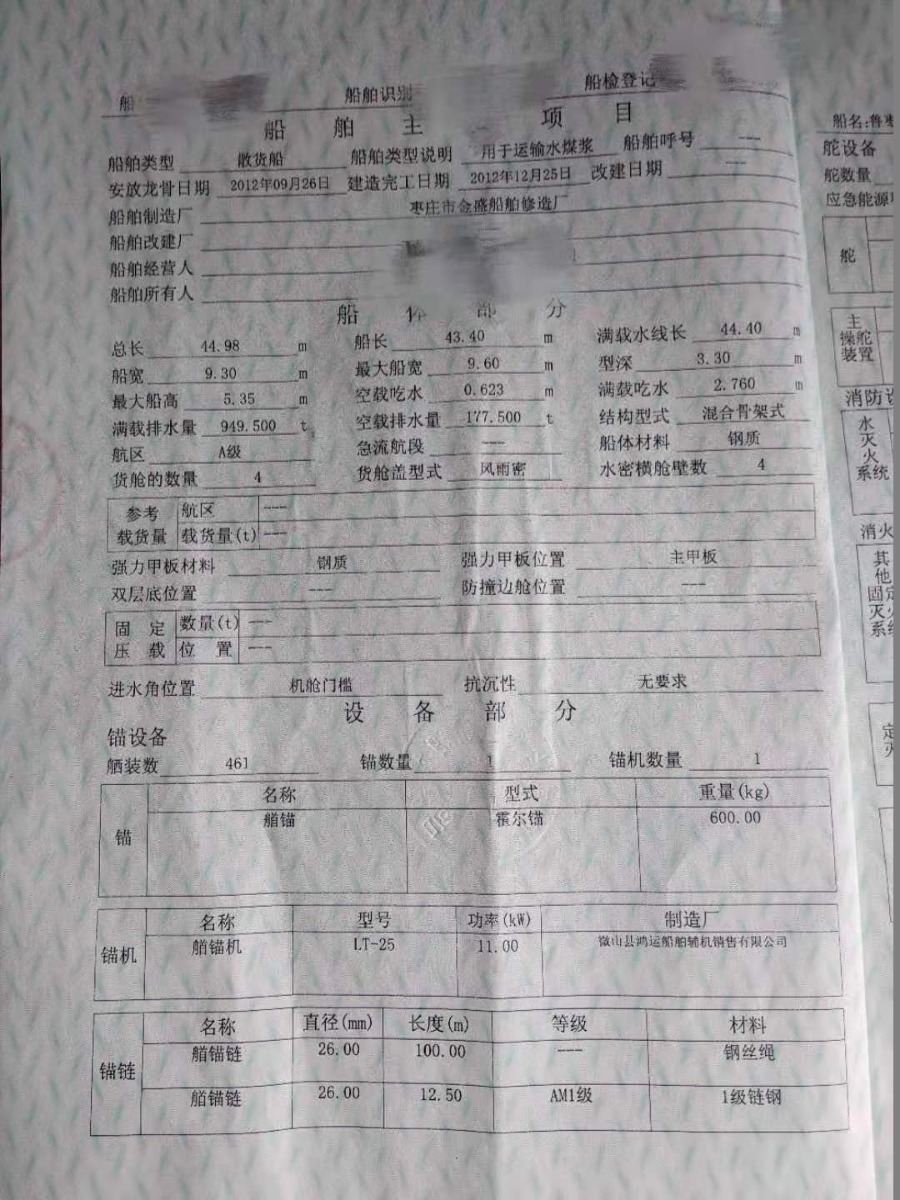 船 船舶识别 船检登记
船 舶 主 项 目
船舶类型 散货船 船舶类型说明 用于运输水煤浆 船舶呼号 ---
安放龙骨日期 2012年09月26日 建造完工日期 2012年12月25日 改建日期 ---
船舶制造厂 枣庄市金盛船舶修造厂
船舶改建厂
船舶经营人
船舶所有人
船 体 部 分
总长 44.98 m 船长 43.40 m 满载水线长 44.40 m
船宽 9.30 m 最大船宽 9.60 m 型深 3.30 m
最大船高 5.35 m 空载吃水 0.623 m 满载吃水 2.760 m
满载排水量 949.500 t 空载排水量 177.500 t 结构型式 混合骨架式
航区 A级 急流航段 --- 船体材料 钢质
货舱的数量 4 货舱盖型式 风雨密 水密横舱壁数 4
参考 航区 ---
载货量 载货量(t) ---
强力甲板材料 钢质 强力甲板位置 主甲板
双层底位置 --- 防撞边舱位置 ---
固 定 数量(t) ---
压 载 位 置 ---
进水角位置 机舱门槛 抗沉性 无要求
设 备 部 分
锚设备
舾装数 461 锚数量 1 锚机数量 1
名称 型式 重量(kg)
锚 艏锚 霍尔锚 600.00
名称 型号 功率(kW) 制造厂
锚机 艏锚机 LT-25 11.00 微山县鸿运船舶辅机销售有限公司
名称 直径(mm) 长度(m) 等级 材料
锚链 艏锚链 26.00 100.00 --- 钢丝绳
艏锚链 26.00 12.50 AM1级 1级链钢
船名:鲁枣
舵设备
舵数量
应急能源
舵
主
操舵
装置
消防设
水
灭
火
系统
消火
其
他
固定
灭火
系统
定
灭